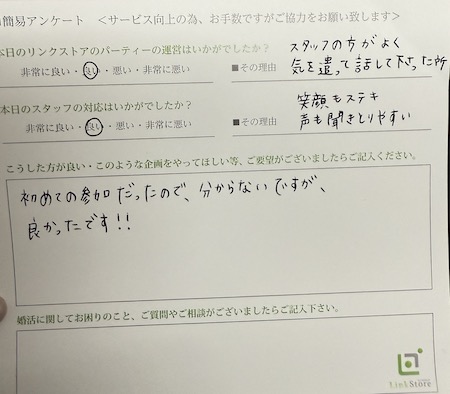 簡易アンケート ＜サービス向上の為、お手数ですがご協力をお願い致します＞
本日のリンクストアのパーティーの運営はいかがでしたか？
非常に良い・良い・悪い・非常に悪い
■その理由
スタッフの方がよく
気を遣って話して下さった所
本日のスタッフの対応はいかがでしたか？
非常に良い・良い・悪い・非常に悪い
■その理由
笑顔もステキ
声も聞きとりやすい
こうした方が良い・このような企画をやってほしい等、ご要望がございましたらご記入ください。
初めての参加だったので、分からないですが、
良かったです!!
婚活に関してお困りのこと、ご質問やご相談がございましたらご記入下さい。
LinkStore